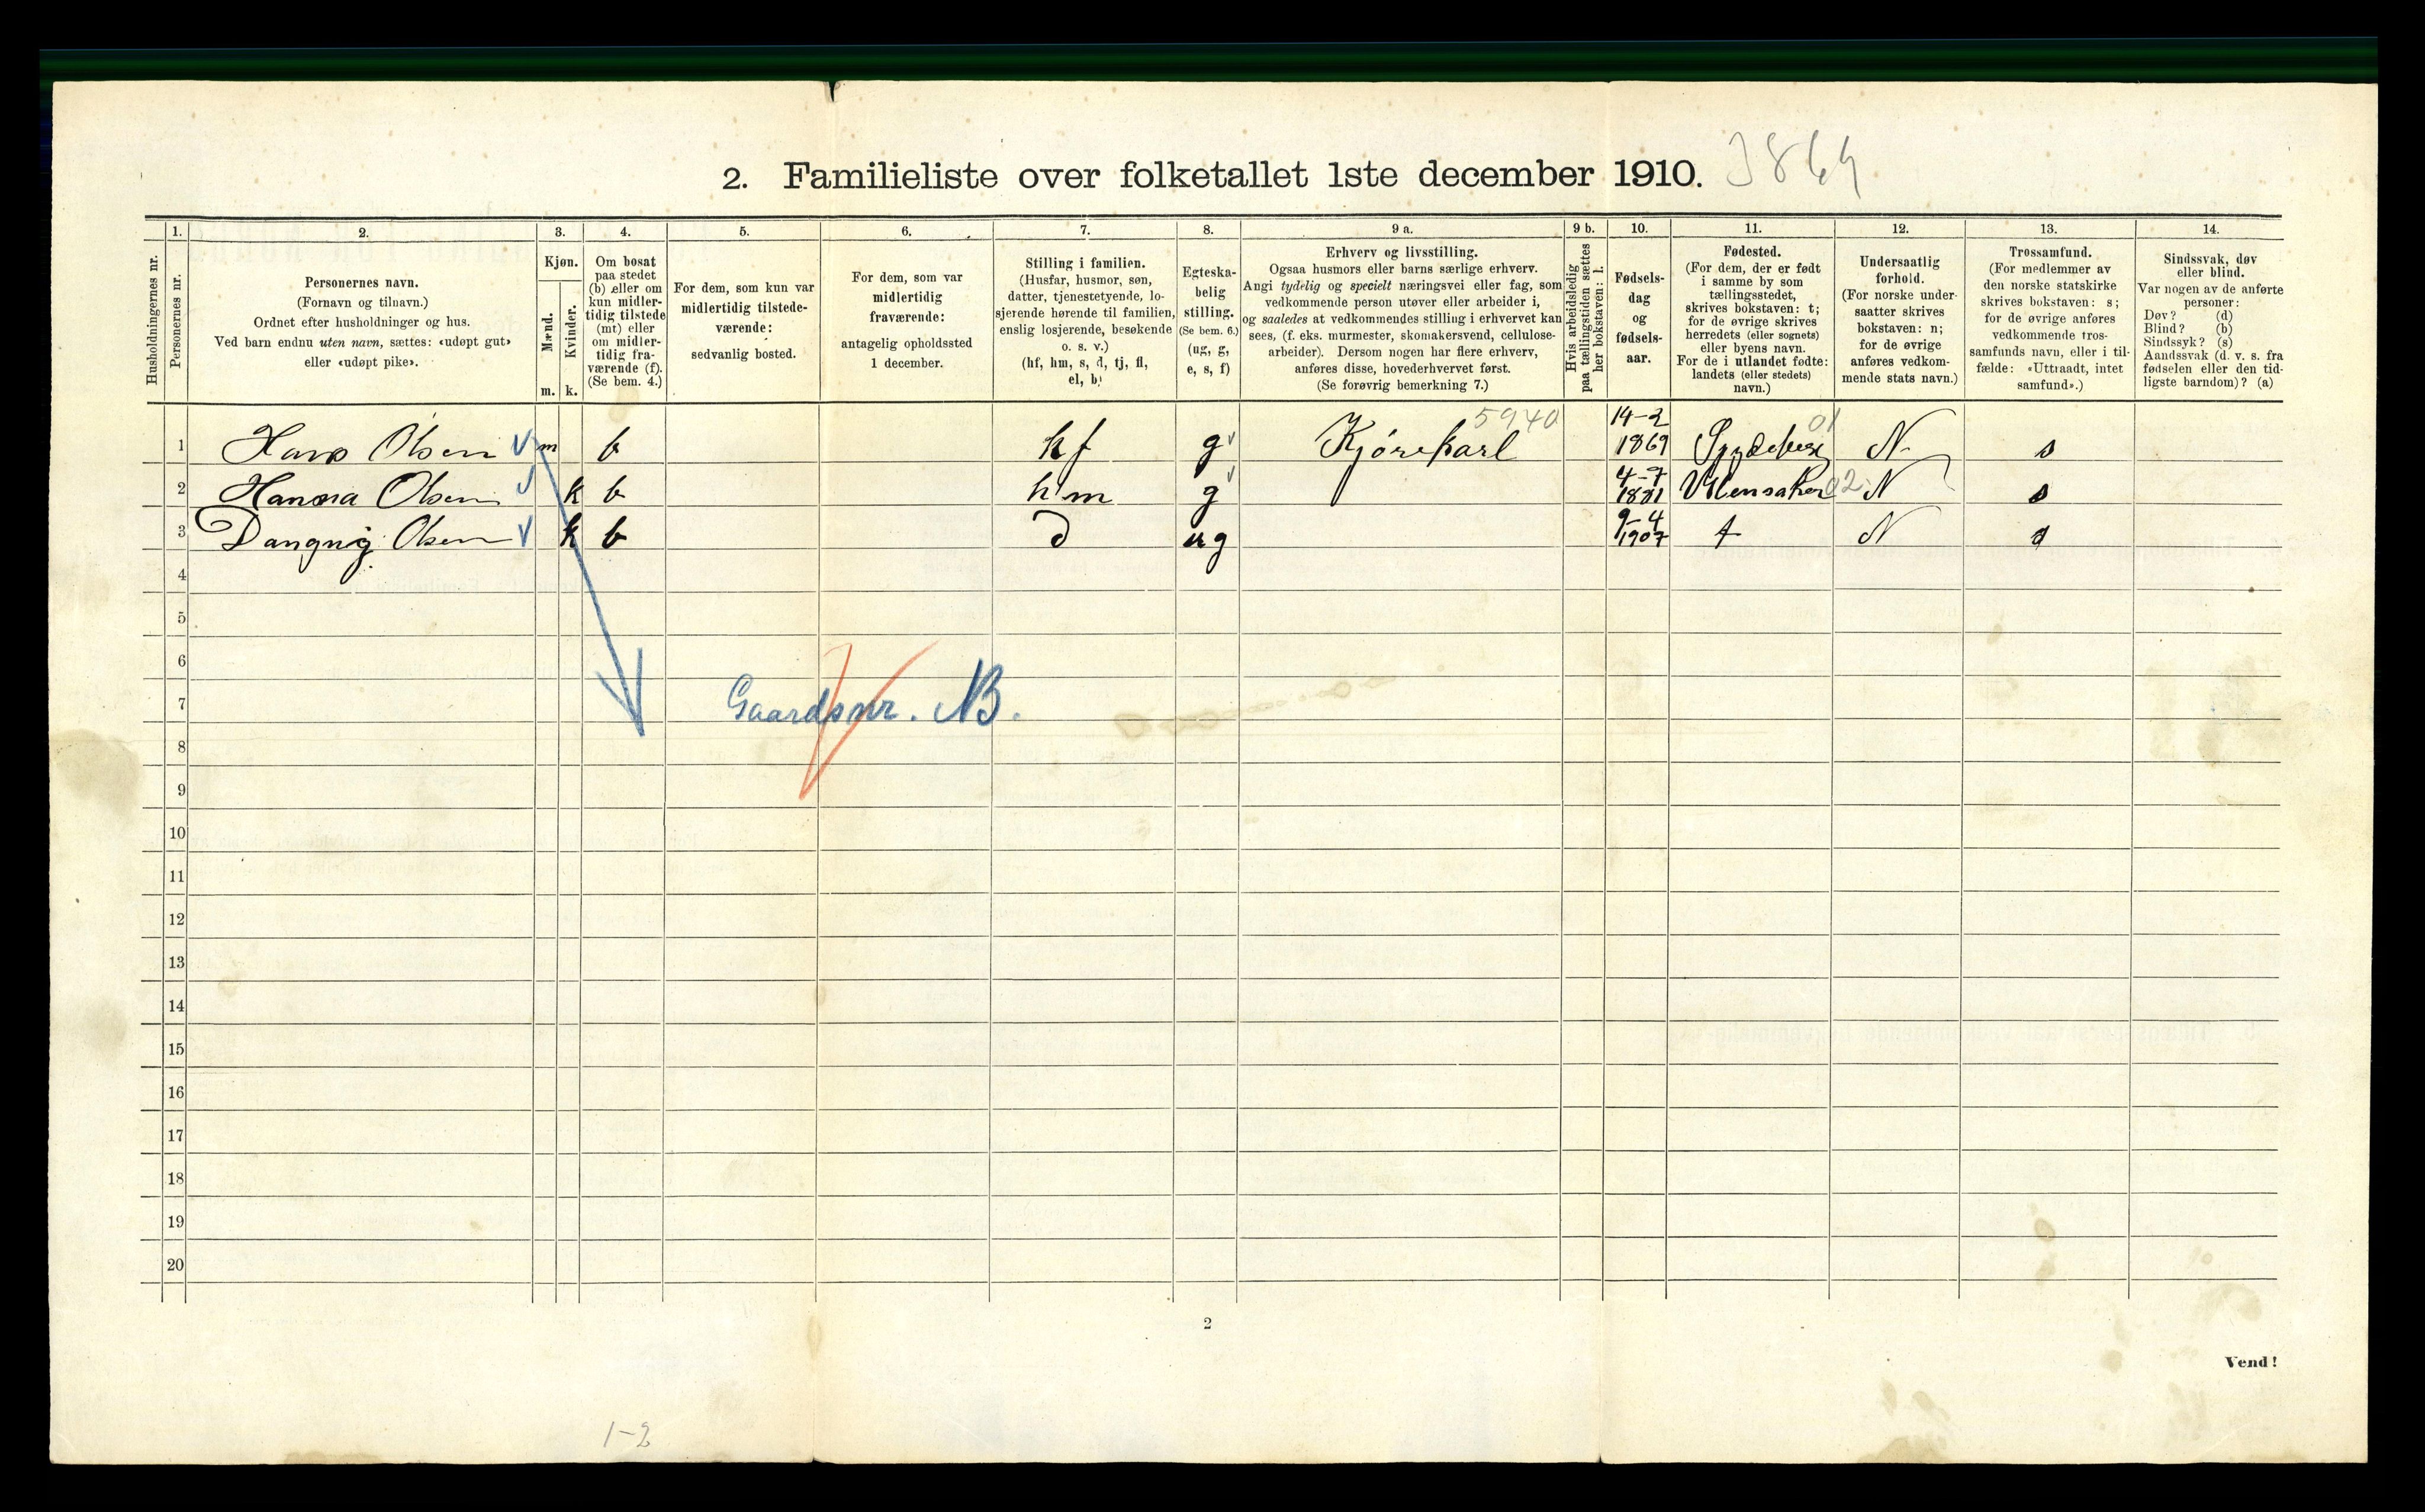 2. Familieliste over folketallet 1ste december 1910. 3864
Husholdningernes nr.
1. Personernes nr.
2.
Personernes navn.
(Fornavn og tilnavn.)
Ordnet efter husholdninger og hus.
Ved barn endnu uten navn, sættes: «udøpt gut»
eller «udøpt pike».
3.
Kjøn.
Mænd. m.
Kvinder. k.
4.
Om bosat
paa stedet
(b) eller om
kun midler-
tidig tilstede
(mt) eller
om midler-
tidig fra-
værende (f).
(Se bem. 4.)
5.
For dem, som kun var
midlertidig tilstede-
værende:
sedvanlig bosted.
6.
For dem, som var
midlertidig
fraværende:
antagelig opholdssted
1 december.
7.
Stilling i familien.
(Husfar, husmor, søn,
datter, tjenestetyende, lo-
sjerende hørende til familien,
enslig losjerende, besøkende
o. s. v.)
(hf, hm, s, d, tj, fl,
el, b)
8.
Egteska-
belig
stilling.
(Se bem. 6.)
(ug, g,
e, s, f)
9 a.
Erhverv og livsstilling.
Ogsaa husmors eller barns særlige erhverv.
Angi tydelig og specielt næringsvei eller fag, som
vedkommende person utøver eller arbeider i,
og saaledes at vedkommendes stilling i erhvervet kan
sees, (f. eks. murmester, skomakersvend, cellulose-
arbeider). Dersom nogen har flere erhverv,
anføres disse, hovederhvervet først.
(Se forøvrig bemerkning 7.)
9 b.
Hvis arbeidsledig
paa tællingstiden sættes
her bokstaven: l.
10.
Fødsels-
dag
og
fødsels-
aar.
11.
Fødested.
(For dem, der er født
i samme by som
tællingsstedet,
skrives bokstaven: t;
for de øvrige skrives
herredets (eller sognets)
eller byens navn.
For de i utlandet fødte:
landets (eller stedets)
navn.)
12.
Undersaatlig
forhold.
(For norske under-
saatter skrives
bokstaven: n;
for de øvrige
anføres vedkom-
mende stats navn.)
13.
Trossamfund.
(For medlemmer av
den norske statskirke
skrives bokstaven: s;
for de øvrige anføres
vedkommende tros-
samfunds navn, eller i til-
fælde: «Uttraadt, intet
samfund».)
14.
Sindssvak, døv
eller blind.
Var nogen av de anførte
personer:
Døv? (d)
Blind? (b)
Sindssyk? (s)
Aandssvak (d. v. s. fra
fødselen eller den tid-
ligste barndom)? (a)
1 Hans Olsen m b hf g Kjørekarl 5940 14-2 1869 Spydeberg 01 N s
2 Hanna Olsen k b hm g 4-7 1881 Ullensaker 02 N s
3 Dangny Olsen k b d ug 9-4 1907 t N s
4
5
6
7 Gaardsnr. NB.
8
9
10
11
12
13
14
15
16
17
18
19
20
2
Vend!
1-2